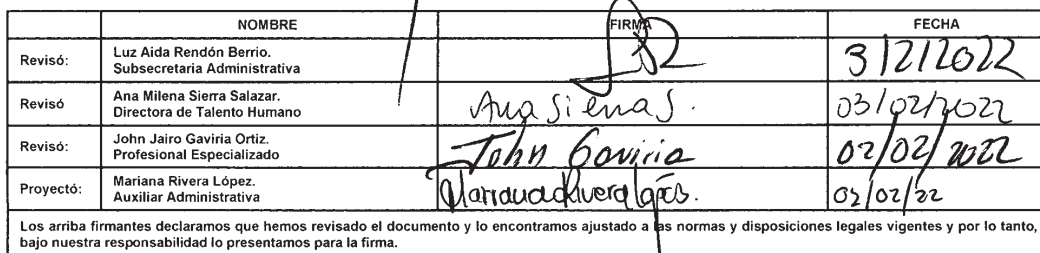 NOMBRE FIRMA FECHA
Revisó: Luz Aida Rendón Berrio.
Subsecretaria Administrativa
3/2/2022
Revisó Ana Milena Sierra Salazar.
Directora de Talento Humano
Ana Sierra S. 03/02/2022
Revisó: John Jairo Gaviria Ortiz.
Profesional Especializado
John Gaviria 02/02/2022
Proyectó: Mariana Rivera López.
Auxiliar Administrativa
Mariana Rivera López. 02/02/22
Los arriba firmantes declaramos que hemos revisado el documento y lo encontramos ajustado a las normas y disposiciones legales vigentes y por lo tanto,
bajo nuestra responsabilidad lo presentamos para la firma.